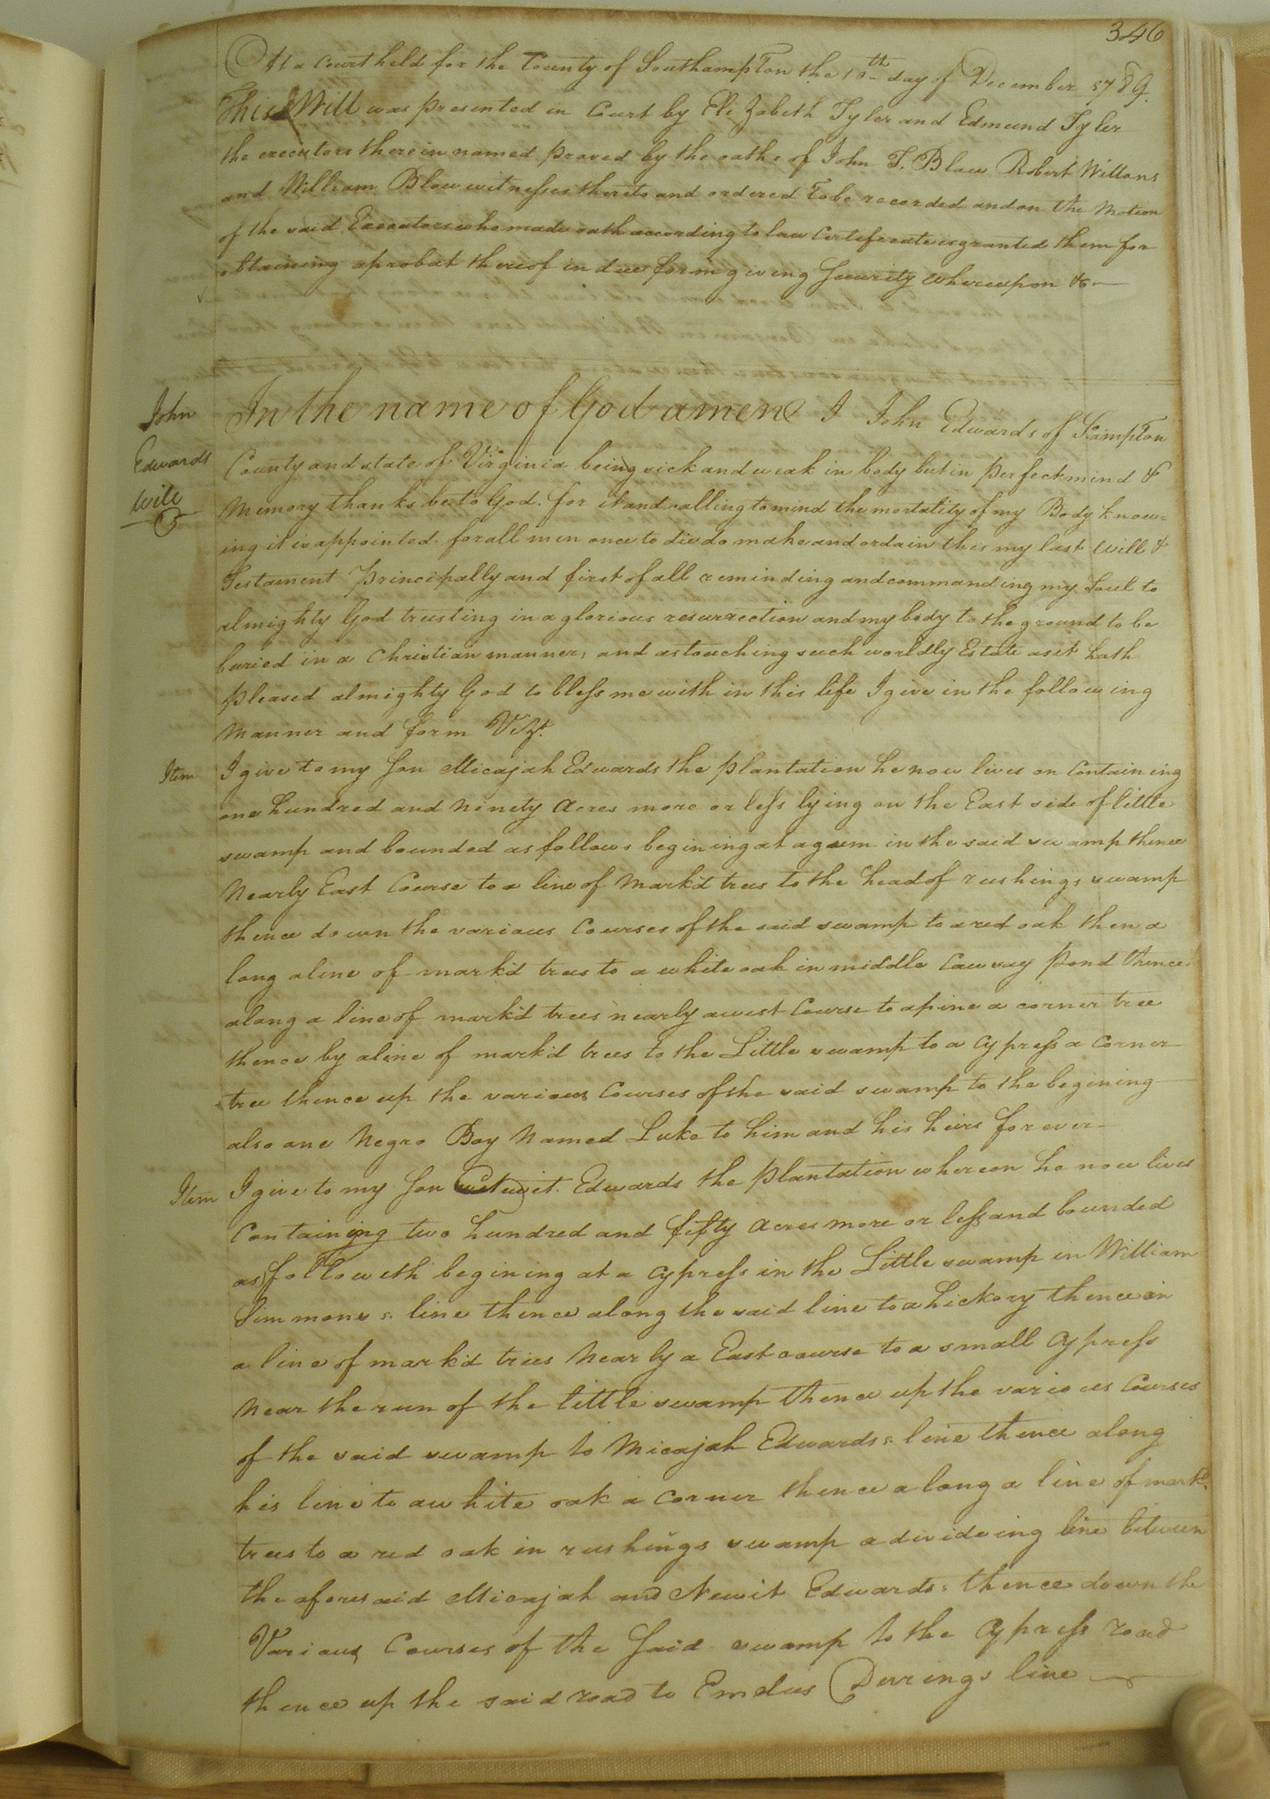 346
At a Court held for the County of Southampton the 10th day of December 1789.
This Will was presented in Court by Elizabeth Tyler and Edmund Tyler
the executors therein named proved by the oaths of John T. Blow Robert
and William Blow witnesses thereto and ordered to be recorded and on the Motion
of the said Executors who made oath according to law Certificate is granted them for
obtaining a probat thereof in due form giving Security whereupon &c
John
Edwards
Will
In the name of God amen I John Edwards of Sampton
County and state of Virginia being sick and weak in body but in perfect mind &
Memory thanks be to God. for it and calling to mind the mortality of my Body know=
ing it is appointed for all men once to die do make and ordain this my last Will &
Testament Principally and first of all reminding and commanding my Soul to
almighty God trusting in a glorious resurrection and my body to the ground to be
buried in a Christian manner, and as touching such worldly Estate as it hath
pleased almighty God to bless me with in this life I give in the following
Manner and form Vizt.
Item I give to my Son Micajah Edwards the plantation he now lives on Containing
one hundred and ninety Acres more or less lying on the East side of little
swamp and bounded as follows begining at a gum in the said swamp thence
Nearly East Course to a line of Mark'd trees to the head of rushings swamp
thence down the various Courses of the said swamp to a red oak then a
long a line of mark'd trees to a white oak in middle Causway Pond thence
along a line of mark'd trees nearly a west Course to a pine a corner tree
thence by a line of mark'd trees to the Little swamp to a Cypress a Corner
tree thence up the various Courses of the said swamp to the begining
also one Negro Boy Named Luke to him and his heirs forever
Item I give to my Son Edwards the plantation whereon he now lives
Containing two hundred and fifty Acres more or less and bounded
as followeth begining at a Cypress in the Little swamp in William
Simmons's line thence along the said line to a hickory thence on
a line of mark'd trees Nearly a East course to a small Cypress
Near the run of the little swamp thence up the various Courses
of the said swamp to Micajah Edwards's line thence along
his line to a white oak a corner thence along a line of mark'd
trees to a red oak in rushings swamp a divideing line between
the aforesaid Micajah and Newit Edwards: thence down the
Various Courses of the Said swamp to the Cypress road
thence up the said road to Emelus Deerings line